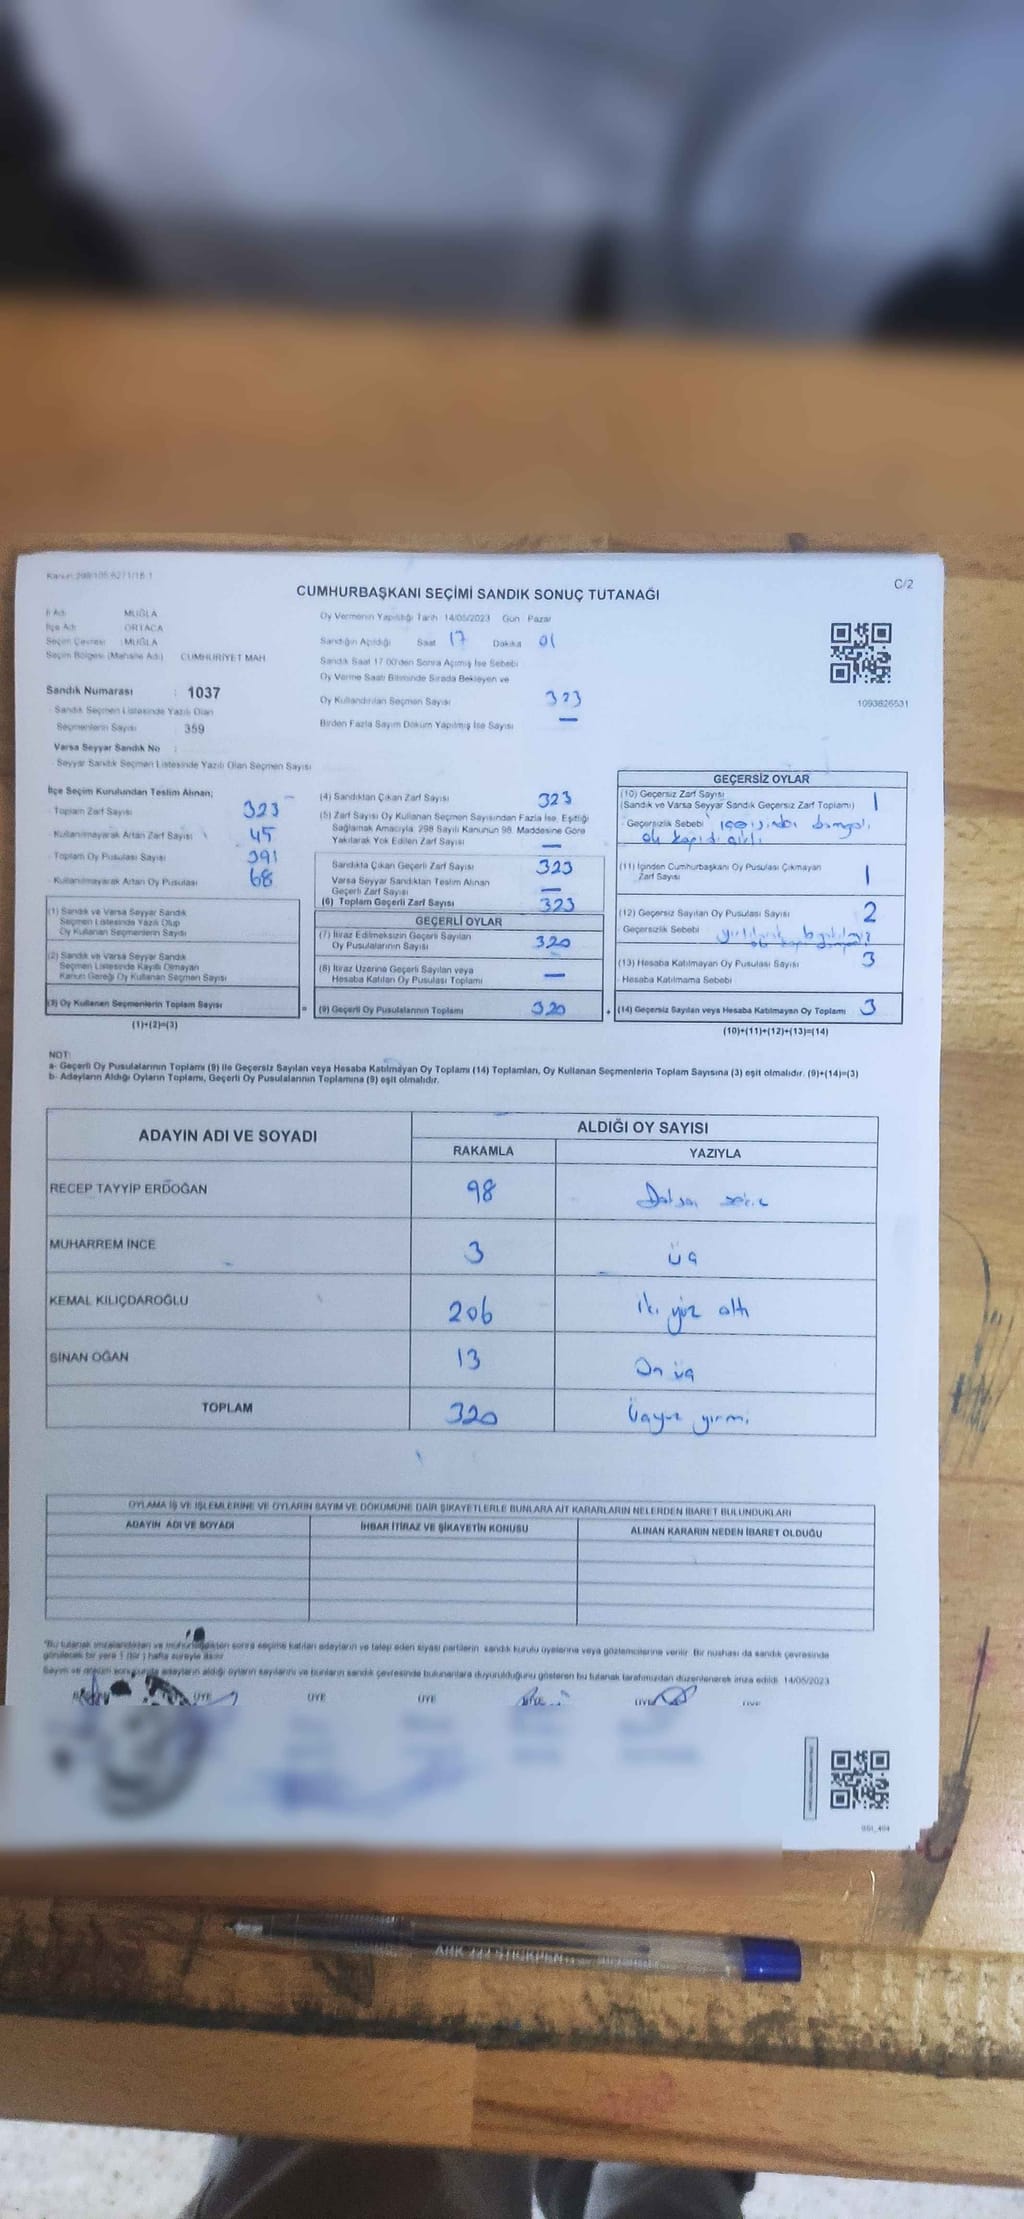 Kanun:298/105 6271/18.1
C/2
CUMHURBAŞKANI SEÇİMİ SANDIK SONUÇ TUTANAĞI
İl Adı MUĞLA
İlçe Adı ORTACA
Seçim Çevresi : MUĞLA
Seçim Bölgesi (Mahalle Adı) CUMHURİYET MAH.
Sandık Numarası : 1037
Sandık Seçmen Listesinde Yazılı Olan
Seçmenlerin Sayısı 359
Varsa Seyyar Sandık No :
Seyyar Sandık Seçmen Listesinde Yazılı Olan Seçmen Sayısı
Oy Vermenin Yapıldığı Tarih 14/05/2023 Gün Pazar
Sandığın Açıldığı Saat 17 Dakika 01
Sandık Saat 17.00'den Sonra Açılmış İse Sebebi
Oy Verme Saati Bitiminde Sırada Bekleyen ve
Oy Kullandırılan Seçmen Sayısı 323
Birden Fazla Sayım Döküm Yapılmış İse Sayısı —
1093826531
İlçe Seçim Kurulundan Teslim Alınan;
Toplam Zarf Sayısı 323
Kullanılmayarak Artan Zarf Sayısı 45
Toplam Oy Pusulası Sayısı 391
Kullanılmayarak Artan Oy Pusulası 68
(1) Sandık ve Varsa Seyyar Sandık
Seçmen Listesinde Yazılı Olup
Oy Kullanan Seçmenlerin Sayısı
(2) Sandık ve Varsa Seyyar Sandık
Seçmen Listesinde Kayıtlı Olmayan
Kanun Gereği Oy Kullanan Seçmen Sayısı
(3) Oy Kullanan Seçmenlerin Toplam Sayısı =
(1)+(2)=(3)
(4) Sandıktan Çıkan Zarf Sayısı 323
(5) Zarf Sayısı Oy Kullanan Seçmen Sayısından Fazla İse, Eşitliği
Sağlamak Amacıyla; 298 Sayılı Kanunun 98. Maddesine Göre
Yakılarak Yok Edilen Zarf Sayısı —
Sandıkta Çıkan Geçerli Zarf Sayısı 323
Varsa Seyyar Sandıktan Teslim Alınan
Geçerli Zarf Sayısı —
(6) Toplam Geçerli Zarf Sayısı 323
GEÇERLİ OYLAR
(7) İtiraz Edilmeksizin Geçerli Sayılan
Oy Pusulalarının Sayısı 320
(8) İtiraz Üzerine Geçerli Sayılan veya
Hesaba Katılan Oy Pusulası Toplamı —
(9) Geçerli Oy Pusulalarının Toplamı 320 +
GEÇERSİZ OYLAR
(10) Geçersiz Zarf Sayısı
(Sandık ve Varsa Seyyar Sandık Geçersiz Zarf Toplamı) 1
Geçersizlik Sebebi
(11) İçinden Cumhurbaşkanı Oy Pusulası Çıkmayan
Zarf Sayısı 1
(12) Geçersiz Sayılan Oy Pusulası Sayısı 2
Geçersizlik Sebebi
(13) Hesaba Katılmayan Oy Pusulası Sayısı 3
Hesaba Katılmama Sebebi
(14) Geçersiz Sayılan veya Hesaba Katılmayan Oy Toplamı 3
(10)+(11)+(12)+(13)=(14)
NOT:
a- Geçerli Oy Pusulalarının Toplamı (9) ile Geçersiz Sayılan veya Hesaba Katılmayan Oy Toplamı (14) Toplamları, Oy Kullanan Seçmenlerin Toplam Sayısına (3) eşit olmalıdır. (9)+(14)=(3)
b- Adayların Aldığı Oyların Toplamı, Geçerli Oy Pusulalarının Toplamına (9) eşit olmalıdır.
ADAYIN ADI VE SOYADI ALDIĞI OY SAYISI
RAKAMLA YAZIYLA
RECEP TAYYİP ERDOĞAN 98 Doksan sekiz
MUHARREM İNCE 3 üç
KEMAL KILIÇDAROĞLU 206 iki yüz altı
SİNAN OĞAN 13 On üç
TOPLAM 320 üçyüz yirmi
OYLAMA İŞ VE İŞLEMLERİNE VE OYLARIN SAYIM VE DÖKÜMÜNE DAİR ŞİKAYETLERLE BUNLARA AİT KARARLARIN NELERDEN İBARET BULUNDUKLARI
ADAYIN ADI VE SOYADI İHBAR İTİRAZ VE ŞİKAYETİN KONUSU ALINAN KARARIN NEDEN İBARET OLDUĞU
"Bu tutanak imzalandıktan ve mühürlendikten sonra seçime katılan adayların ve talep eden siyasi partilerin sandık kurulu üyelerine veya gözlemcilerine verilir. Bir nüshası da sandık çevresinde
görülecek bir yere 1 (bir) hafta süreyle asılır.
Sayım ve döküm sonucunda adayların aldığı oyların sayılarını ve bunların sandık çevresinde bulunanlara duyurulduğunu gösteren bu tutanak tarafımızdan düzenlenerek imza edildi. 14/05/2023
ÜYE ÜYE ÜYE ÜYE ÜYE